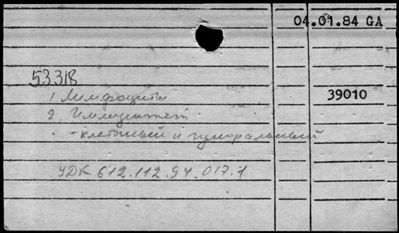 04.01.84 GA
53318
1. Лимфоциты
39010
2. Иммунитет
- клеточный и гуморальный
УДК 612.112.94.017.1